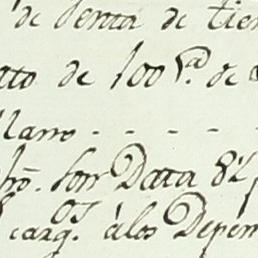 de Venta de tier
tto de 100 p.s de
llano - - - -
hro. Son Data 82
carg.os à los Depen